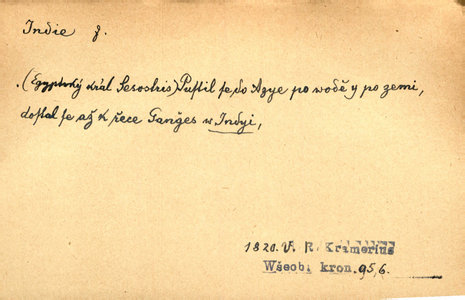 Indie f.
.(Egyptský král Sesostris) Pustil se do Azye po wodě y po zemi,
dostal se až k řece Ganges w Indyi,
1820. V. R. Kramerius
Wšeob. kron. 95,6.